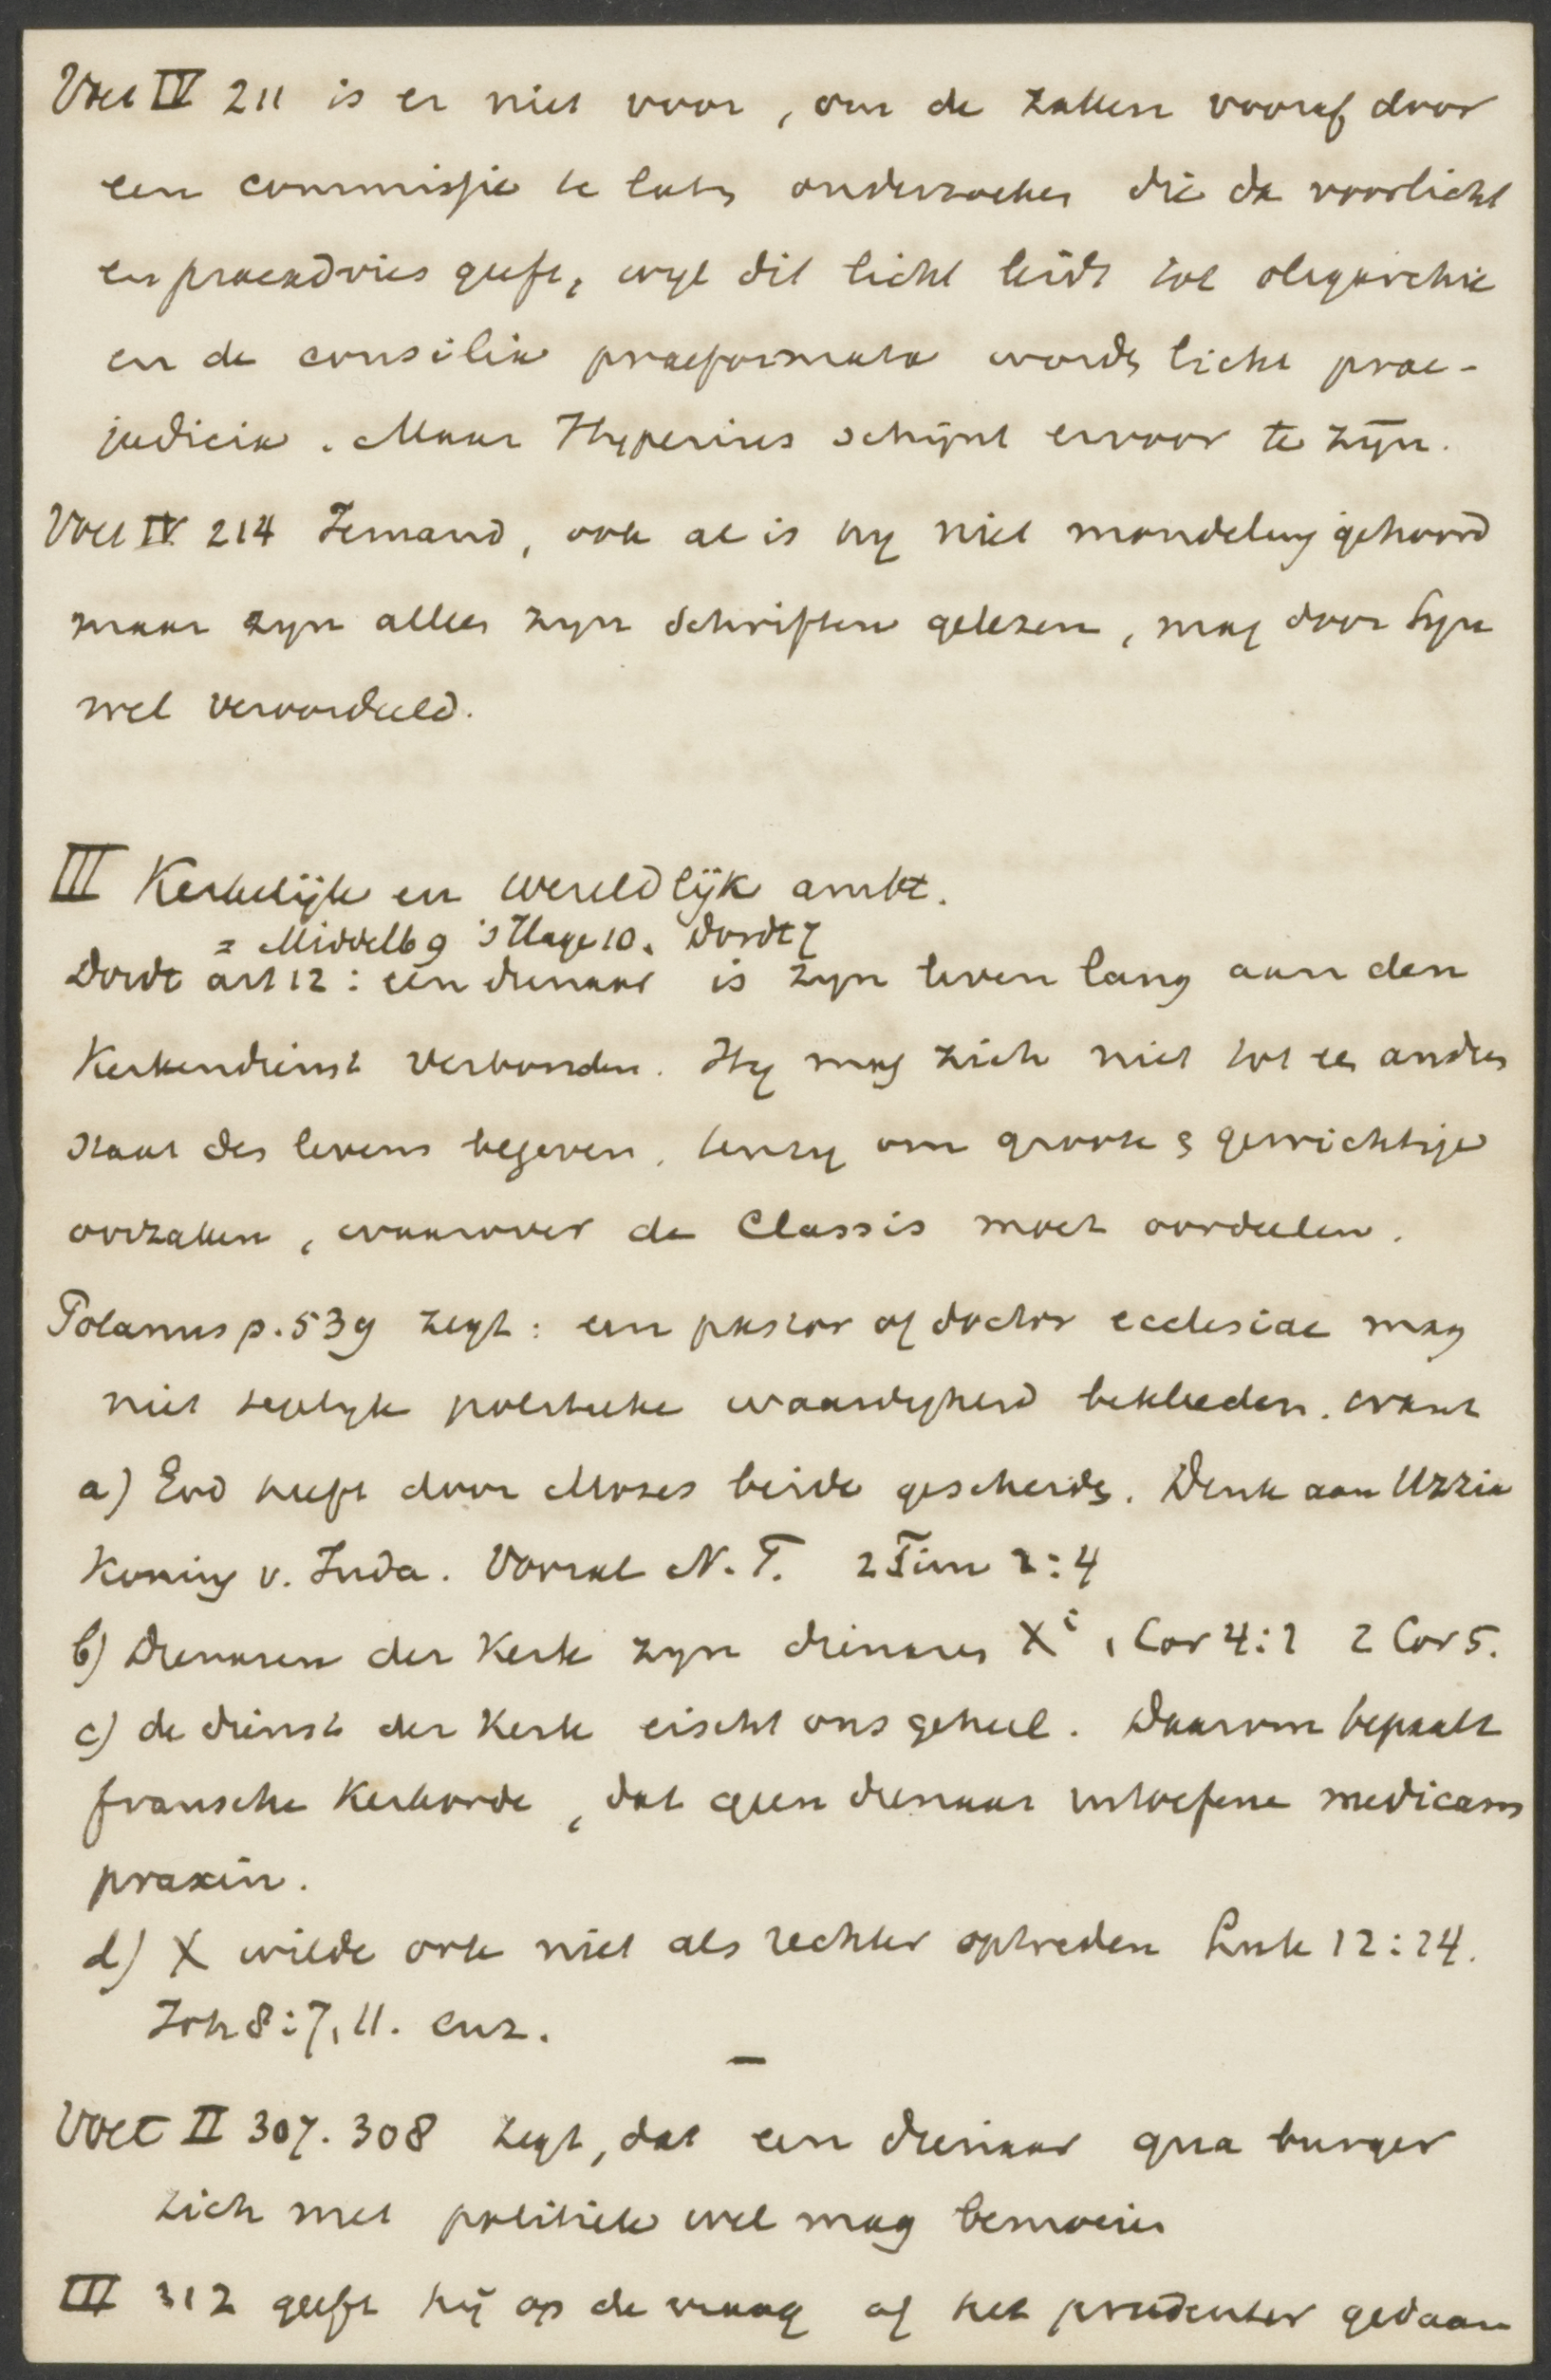 Voet IV 211 is er niet voor, om de zaken vooraf door
een commissie te laten onderzoeken die de voorlicht
en praeadvies geeft, wyl dit licht leidt tot oligarchie
en de consilia praeformata worden licht prae-
judicia. Maar Hyperius schynt ervoor te zyn.
Voet IV 214 Iemand, ook al is hy niet mondeling gehoord
maar zyn alleen zyn schriften gelezen, mag door Syn
wel veroordeeld.
III Kerkelijk en wereldlijk ambt.
= Middelb 9 's Hage 10. Dordt 7
Dordt art 12: een dienaar is zyn leven lang aan den
Kerkendienst verbonden. Hy mag zich niet tot een andren
staat des levens begeven, tenzy om groote & gewichtige
oorzaken, waarover de Classis moet oordeelen.
Polanus p. 539 zegt: een pastor of doctor ecclesiae mag
niet tegelyk politieke waardigheid bekleeden. want
a) God heeft door Mozes beide gescheiden. Denk aan Uzzia
Koning v. Juda. Vooral N.T. 2 Tim 2:4
b) Dienaren der Kerk zyn dienaren Xi 1 Cor 4:1 2 Cor 5.
c) de dienst der Kerk eischt ons geheel. Daarom bepaalt
fransche Kerkorde, dat geen dienaar uitoefene medicam
praxin.
d) X wilde ook niet als rechter optreden Luk 12:14.
Joh 8:7, 11. enz.
—
Voet II 307. 308 zegt, dat een dienaar qua burger
zich met politiek wel mag bemoeien
III 312 geeft hij op de vraag of het prudenter gedaan